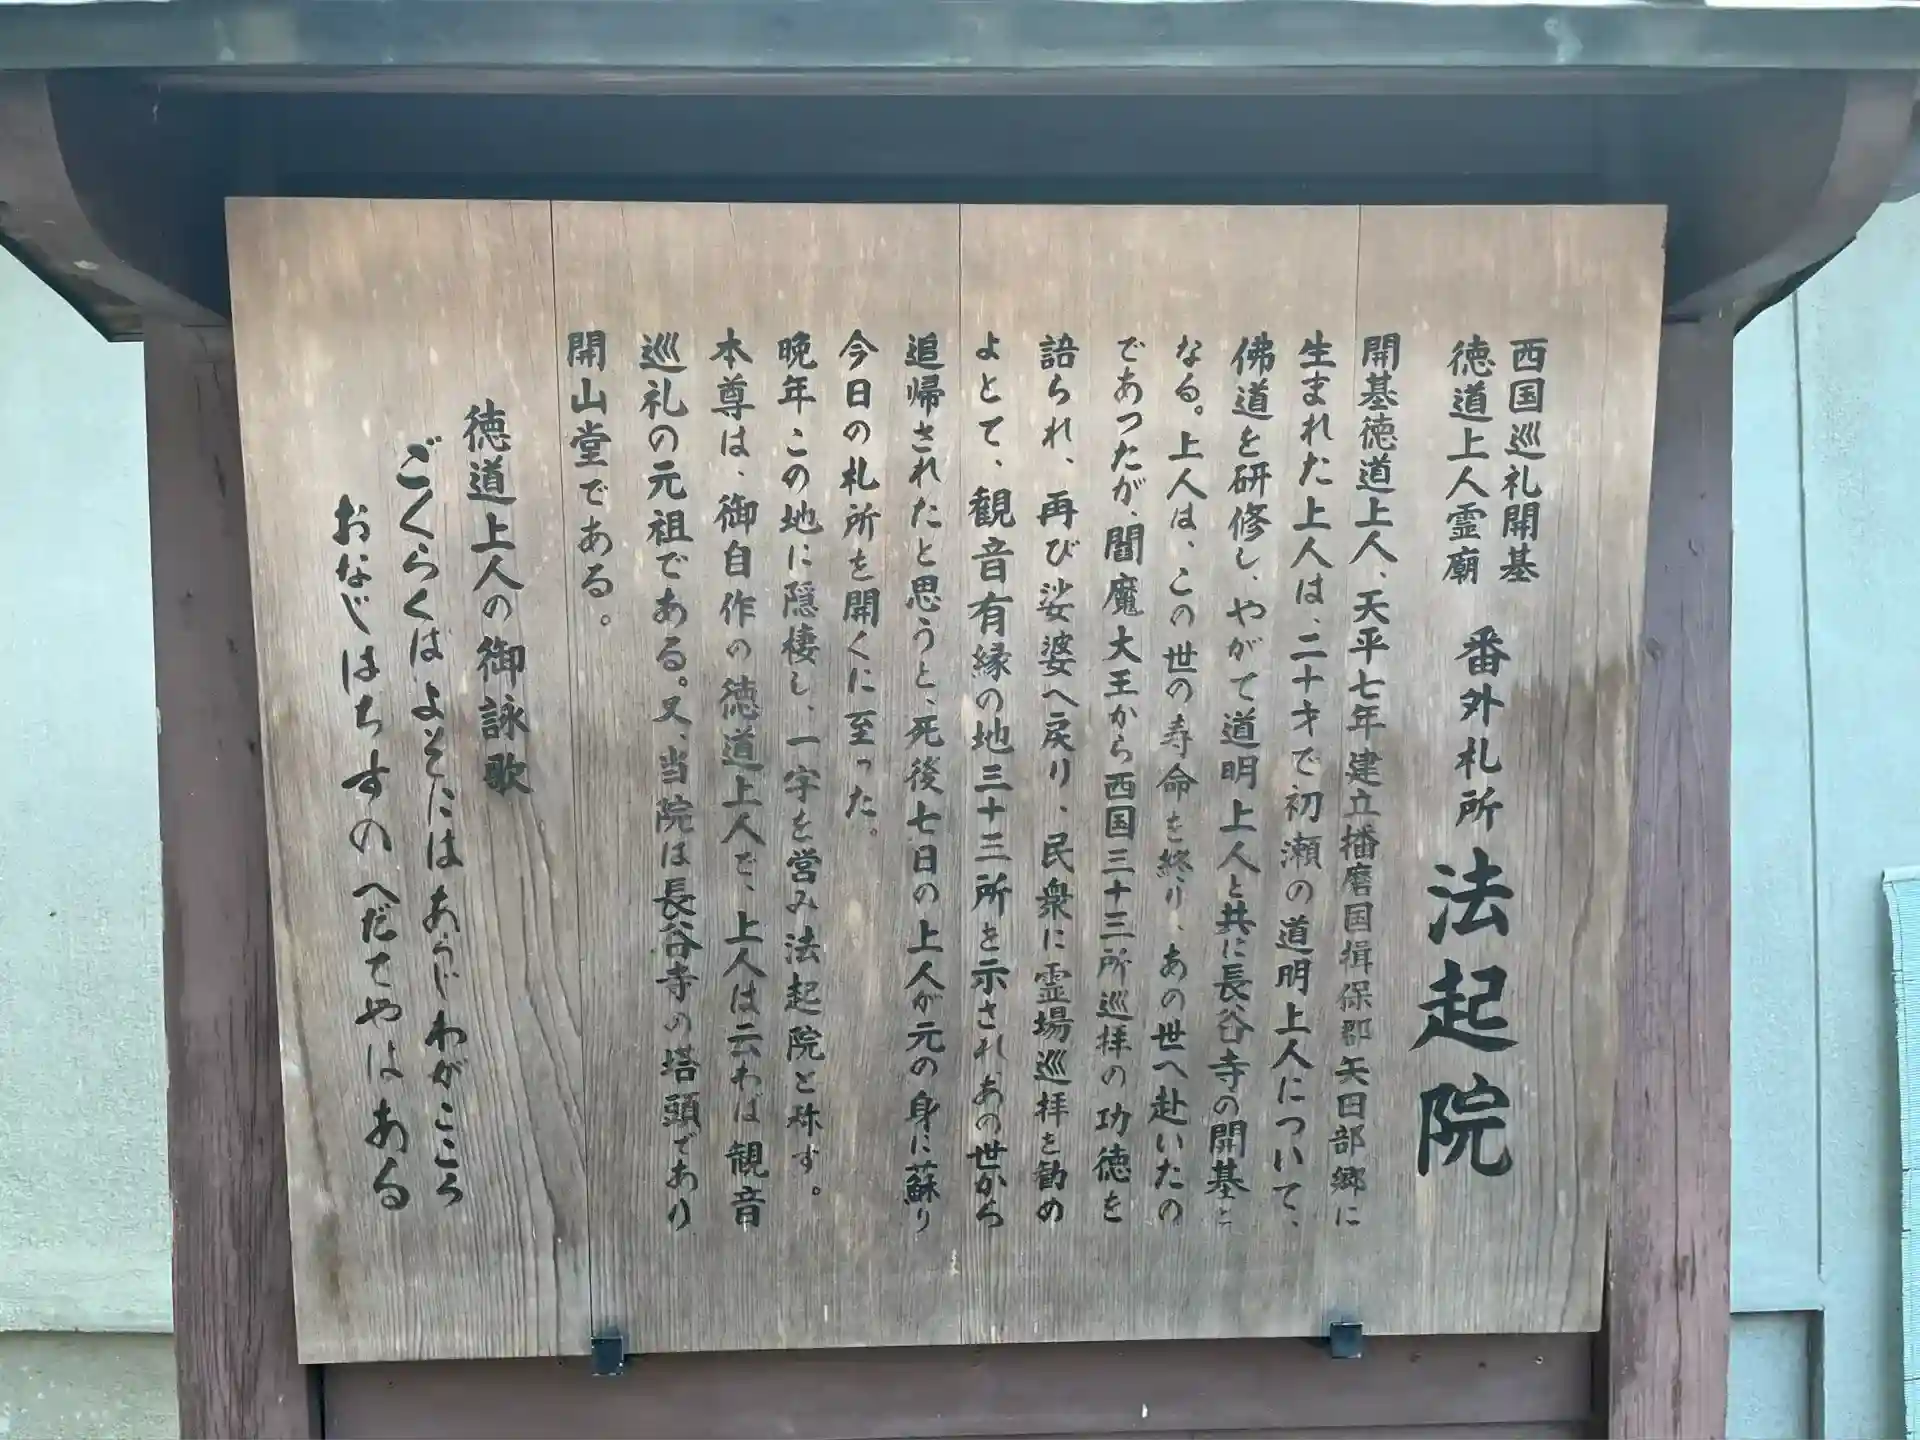 西国巡礼開基
徳道上人霊廟
番外札所 法起院
開基徳道上人、天平七年建立播磨国揖保郡矢田部郷に
生まれた上人は、二十才で初瀬の道明上人について、
佛道を研修し、やがて道明上人と共に長谷寺の開基と
なる。上人は、この世の寿命を終り、あの世へ赴いたの
であつたが、閻魔大王から西国三十三所巡拝の功徳を
語られ、再び娑婆へ戻り、民衆に霊場巡拝を勧め
よとて、観音有縁の地三十三所を示され、あの世から
追帰されたと思うと、死後七日の上人が元の身に蘇り
今日の札所を開くに至った。
晩年この地に隠棲し、一宇を営み法起院と称す。
本尊は、御自作の徳道上人で、上人は云わば観音
巡礼の元祖である。又、当院は長谷寺の塔頭であり
開山堂である。
徳道上人の御詠歌
ごくらくばよそにはあらじわがこころ
おなじはちすのへだてやはある